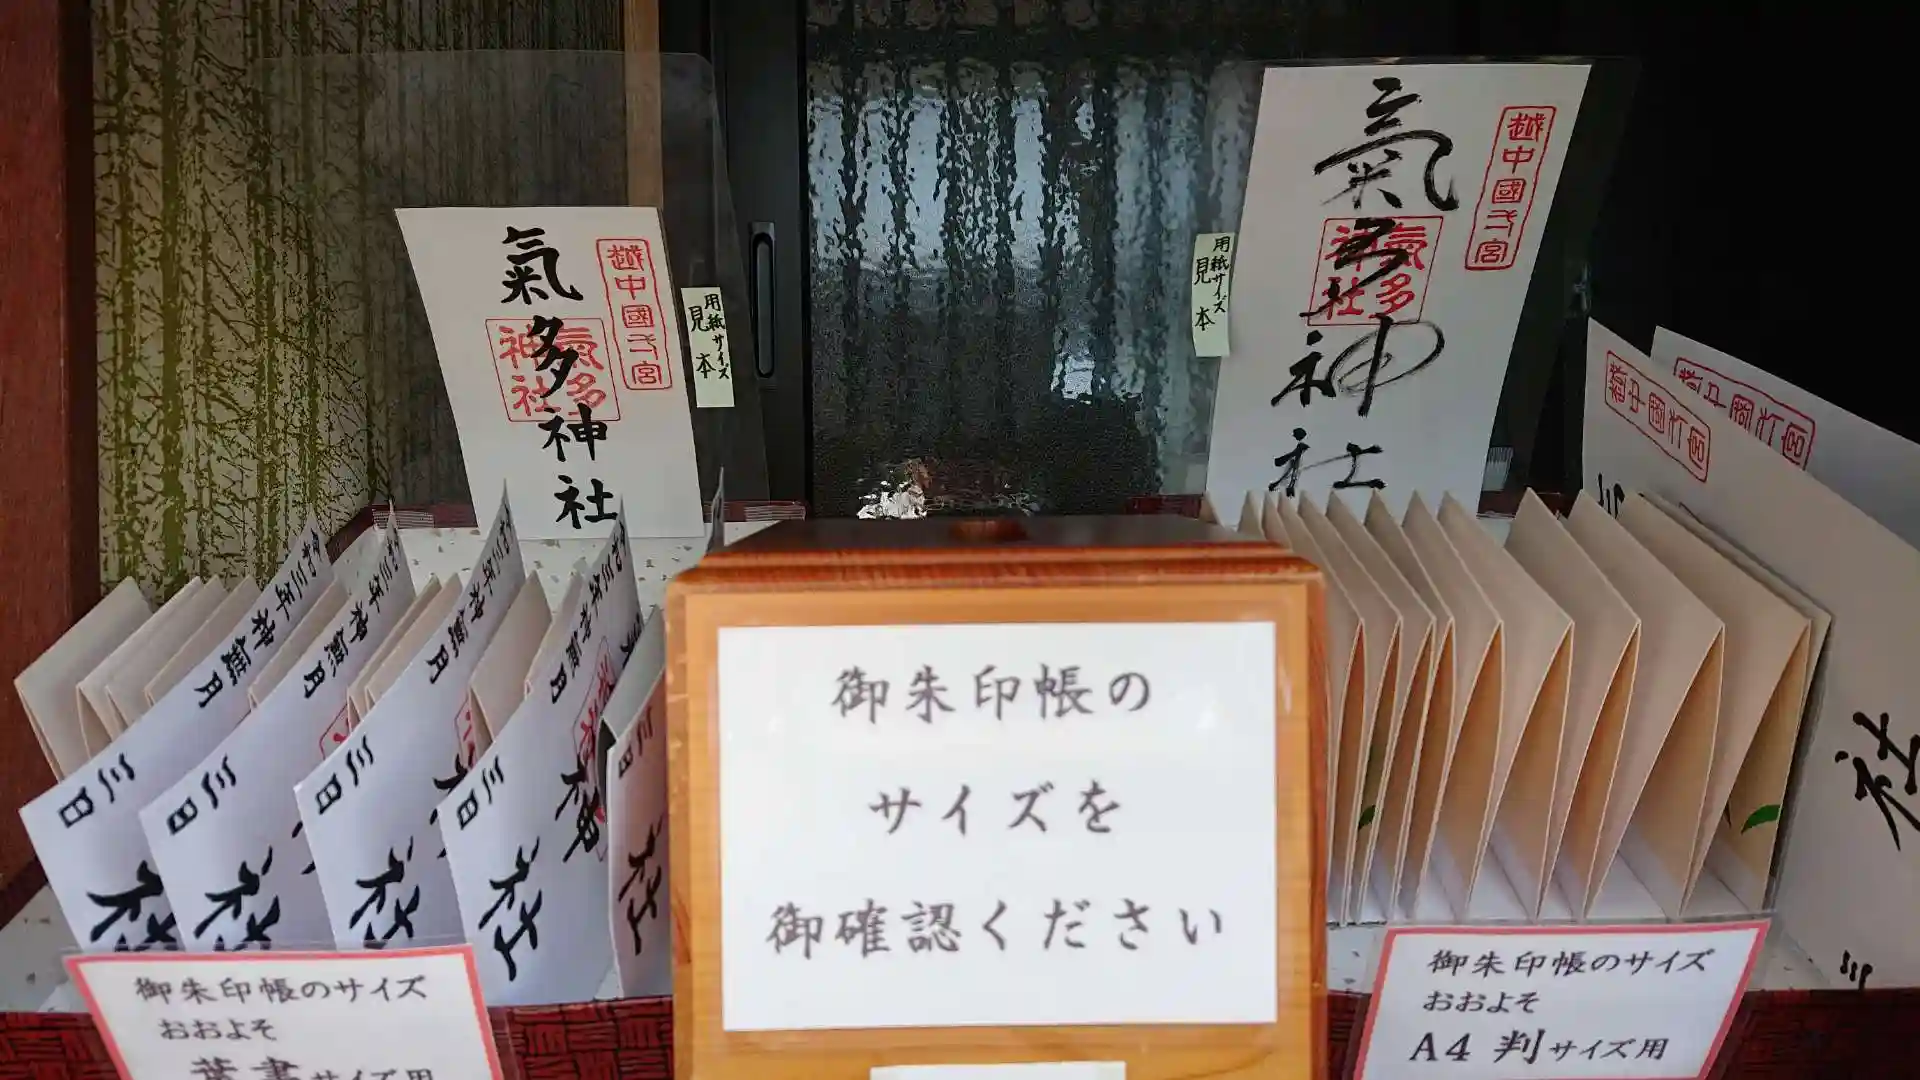 氣多神社
越中國一宮
氣多
神社
用紙サイズ
見本
氣多神社
越中國一宮
氣多
神社
用紙サイズ
見本
三日
三日
三日
三日
御朱印帳の
サイズを
御確認ください
御朱印帳のサイズ
おおよそ
葉書サイズ用
御朱印帳のサイズ
おおよそ
A4判サイズ用
社